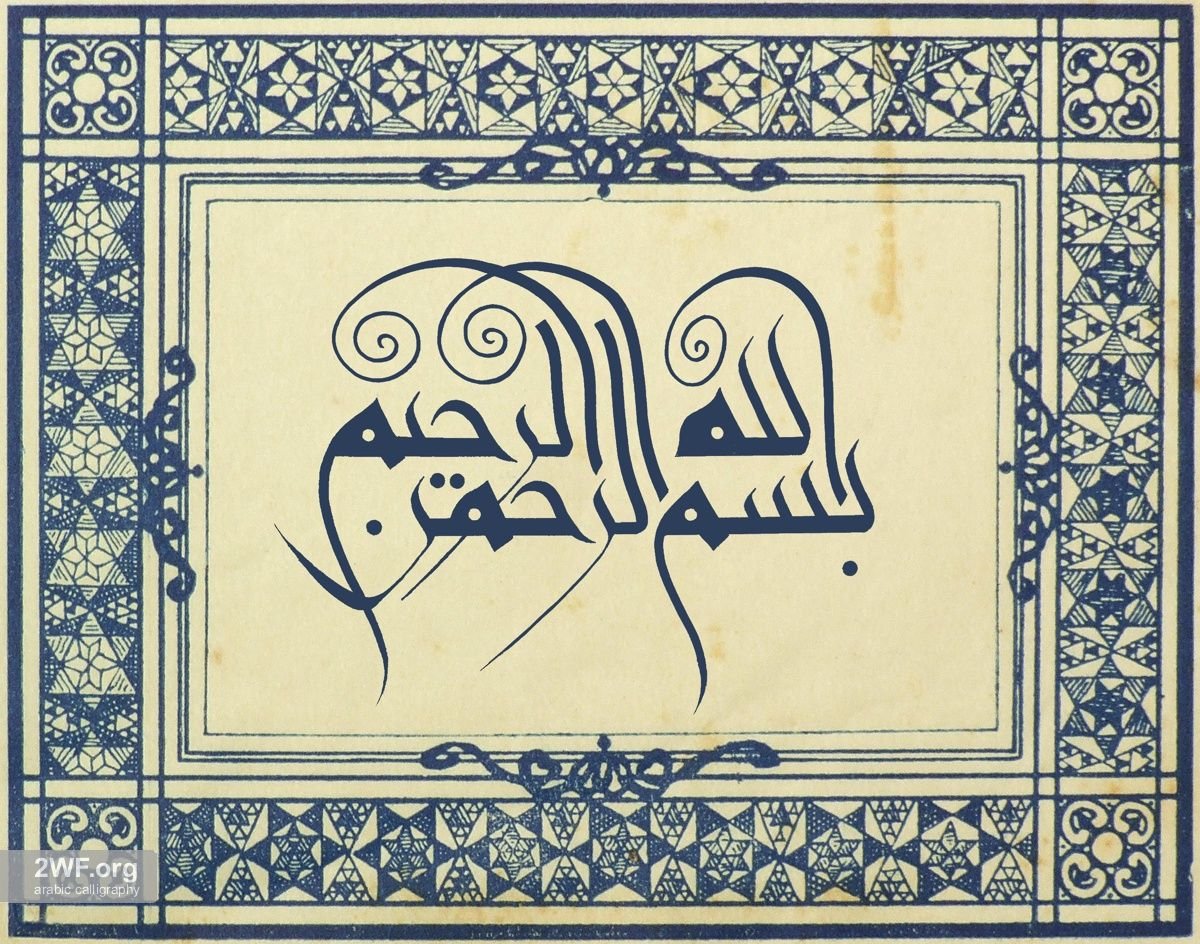 بسم الله الرحمن الرحيم
2WF.org
arabic calligraphy